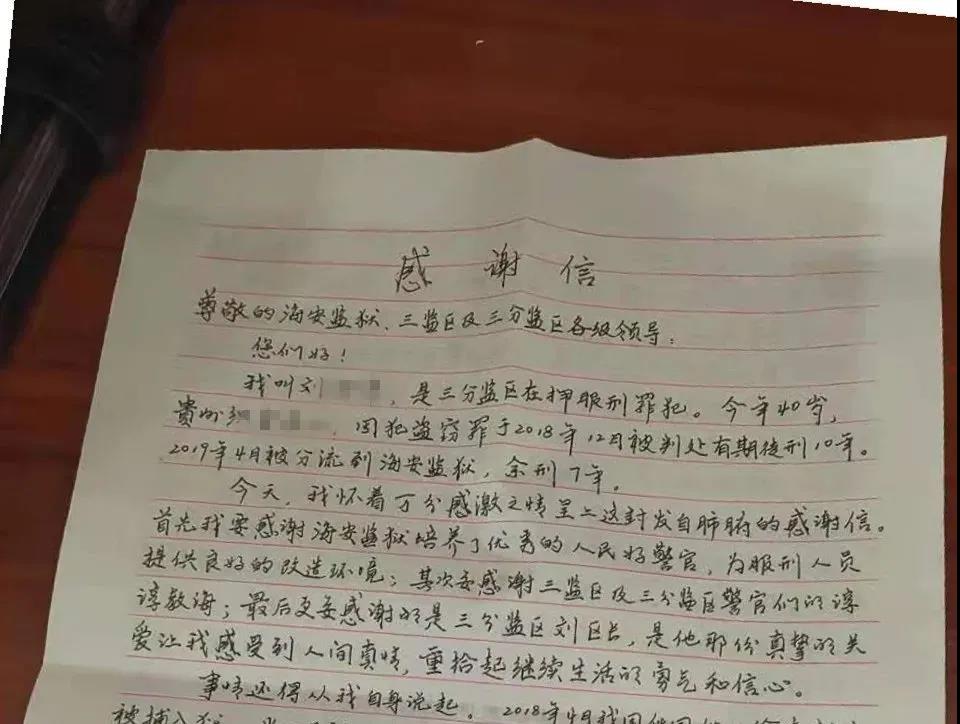 感谢信
尊敬的海安监狱、三监区及三分监区各级领导:
您们好!
我叫刘 ,是三分监区在押服刑罪犯。今年40岁,
贵州 ,因犯盗窃罪于2018年12月被判处有期徒刑10年。
2019年4月被分流到海安监狱,余刑7年。
今天,我怀着万分感激之情呈上这封发自肺腑的感谢信。
首先我要感谢海安监狱培养了优秀的人民好警官,为服刑人员
提供良好的改造环境;其次要感谢三监区及三分监区警官们的谆
谆教诲;最后更要感谢的是三分监区刘区长,是他那份真挚的关
爱让我感受到人间真情,重拾起继续生活的勇气和信心。
事情还得从我自身说起。2018年4月我因
被捕入狱